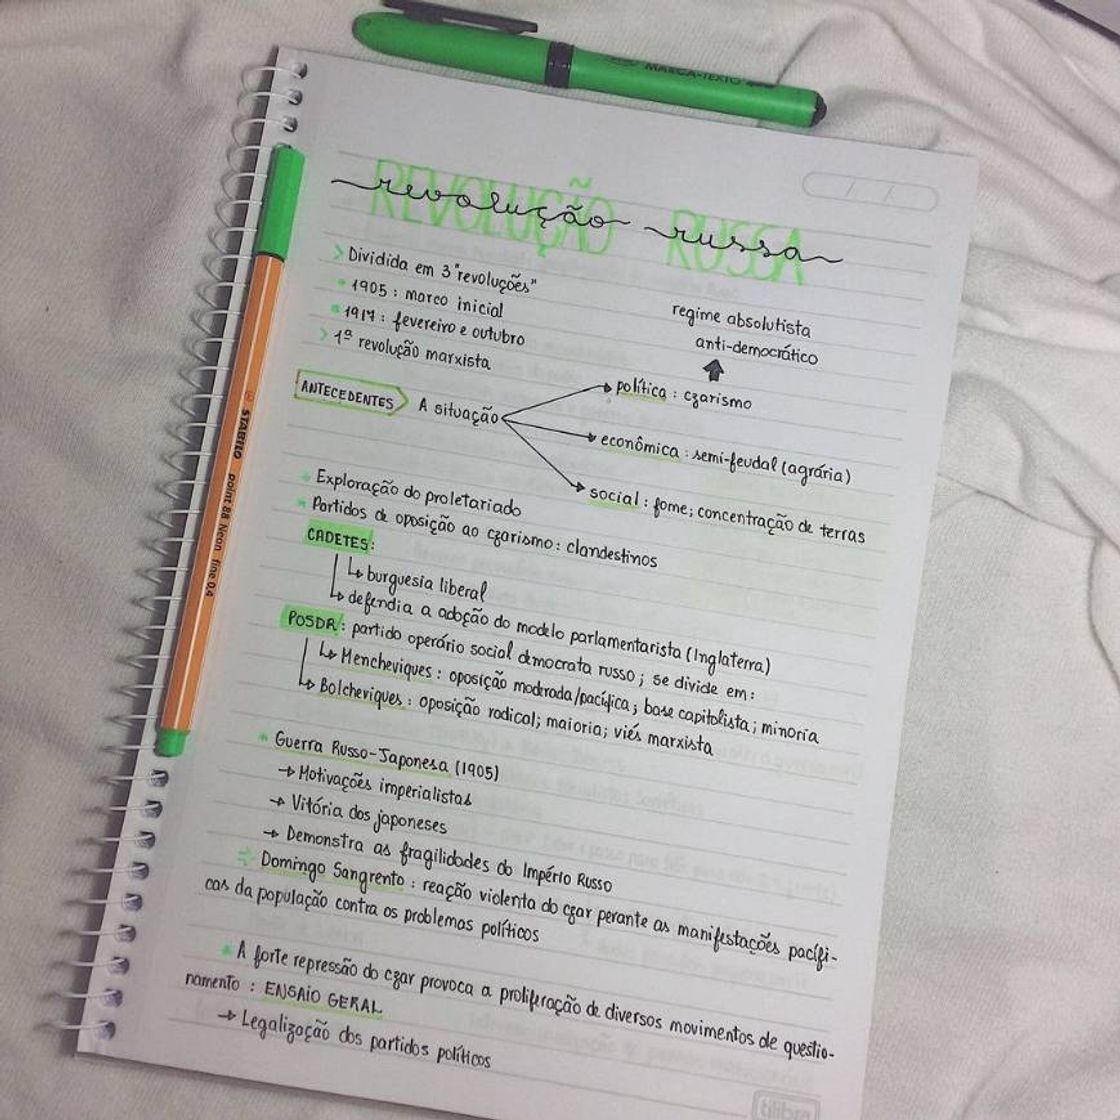 MARCA-TEXTO
REVOLUÇÃO RUSSA
revolução russa
> Dividida em 3 "revoluções"
* 1905 : marco inicial
* 1917 : fevereiro e outubro
> 1ª revolução marxista
regime absolutista
anti-democrático
ANTECEDENTES A situação
política : czarismo
econômica : semi-feudal (agrária)
social : fome; concentração de terras
* Exploração do proletariado
* Partidos de oposição ao czarismo : clandestinos
CADETES :
↳ burguesia liberal
↳ defendia a adoção do modelo parlamentarista (Inglaterra)
POSDR : partido operário social democrata russo ; se divide em :
↳ Mencheviques : oposição moderada/pacífica ; base capitalista ; minoria
↳ Bolcheviques : oposição radical; maioria; viés marxista
* Guerra Russo-Japonesa (1905)
→ Motivações imperialistas
→ Vitória dos japoneses
→ Demonstra as fragilidades do Império Russo
Domingo Sangrento : reação violenta do czar perante as manifestações pacífi-
cas da população contra os problemas políticos
* A forte repressão do czar provoca a proliferação de diversos movimentos de questio-
namento : ENSAIO GERAL
→ Legalização dos partidos políticos
STABILO point 88 Neon fine 0,4
tilibra